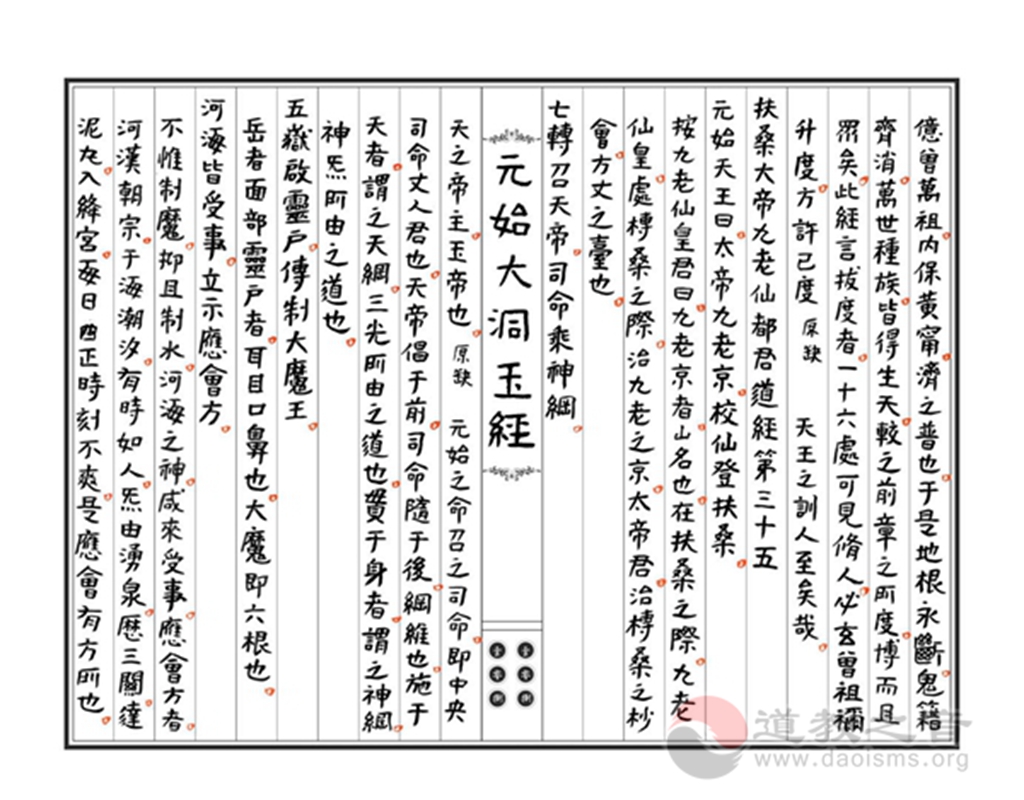 億曾萬祖内保黃甯濟之普也于是地根永斷鬼籍
齊消萬世種族皆得生天較之前章之所度博而且
眾矣此經言拔度者一十六處可見脩人必玄曾祖禰
升度方許己度 原缺 天王之訓人至矣哉
扶桑大帝九老仙都君道經第三十五
元始天王曰太帝九老京校仙登扶桑
按九老仙皇君曰九老京者山名也在扶桑之際九老
仙皇處榑桑之際治九老之京太帝君治榑桑之杪
會方丈之臺也
七轉召天帝司命乘神綱
元始大洞玉經
天之帝主玉帝也 原缺 元始之命召之司命即中央
司命丈人君也天帝倡于前司命隨于後綱維也施于
天者謂之天綱三光所由之道也貫于身者謂之神綱
神炁所由之道也
五嶽啟靈戶傳制大魔王
岳者面部靈戶者耳目口鼻也大魔即六根也
河海皆受事立示應會方
不惟制魔抑且制水河海之神咸來受事應會方者
河漢朝宗于海潮汐有時如人炁由湧泉歷三關達
泥丸入絳宮每日四正時刻不爽是應會有方所也
道教之音
www.daoisms.org